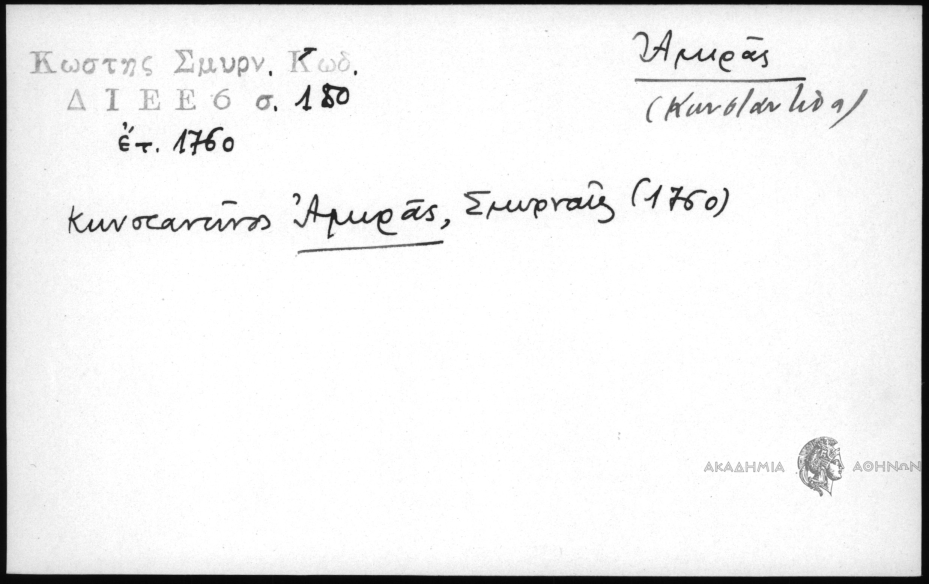 Κωστης Σμυρν. Κωδ.
ΔΙΕΕ 6 σ. 180
ἔτ. 1760
Ἀμιρᾶς
Κωνσταντῖνος Ἀμιρᾶς, Σμυρναῖος (1760)
ΑΚΑΔΗΜΙΑ ΑΘΗΝΩΝ